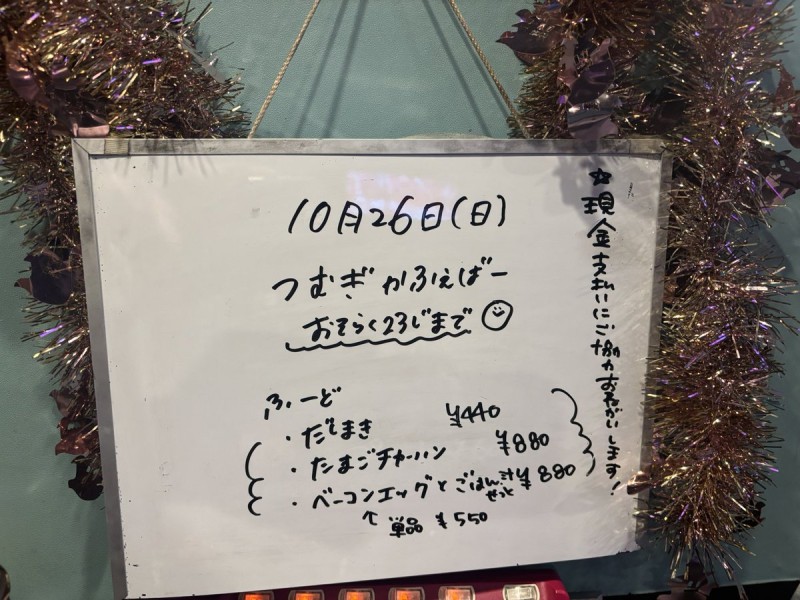 10月26日(日)
つむぎかふぇばー
おそらく23じまで
ふーど
・だしまき ¥440
・たまごチャーハン ¥880
・ベーコンエッグとごはん、汁せっと ¥880
↑単品 ¥550
☆現金支払いにご協力おねがいします!